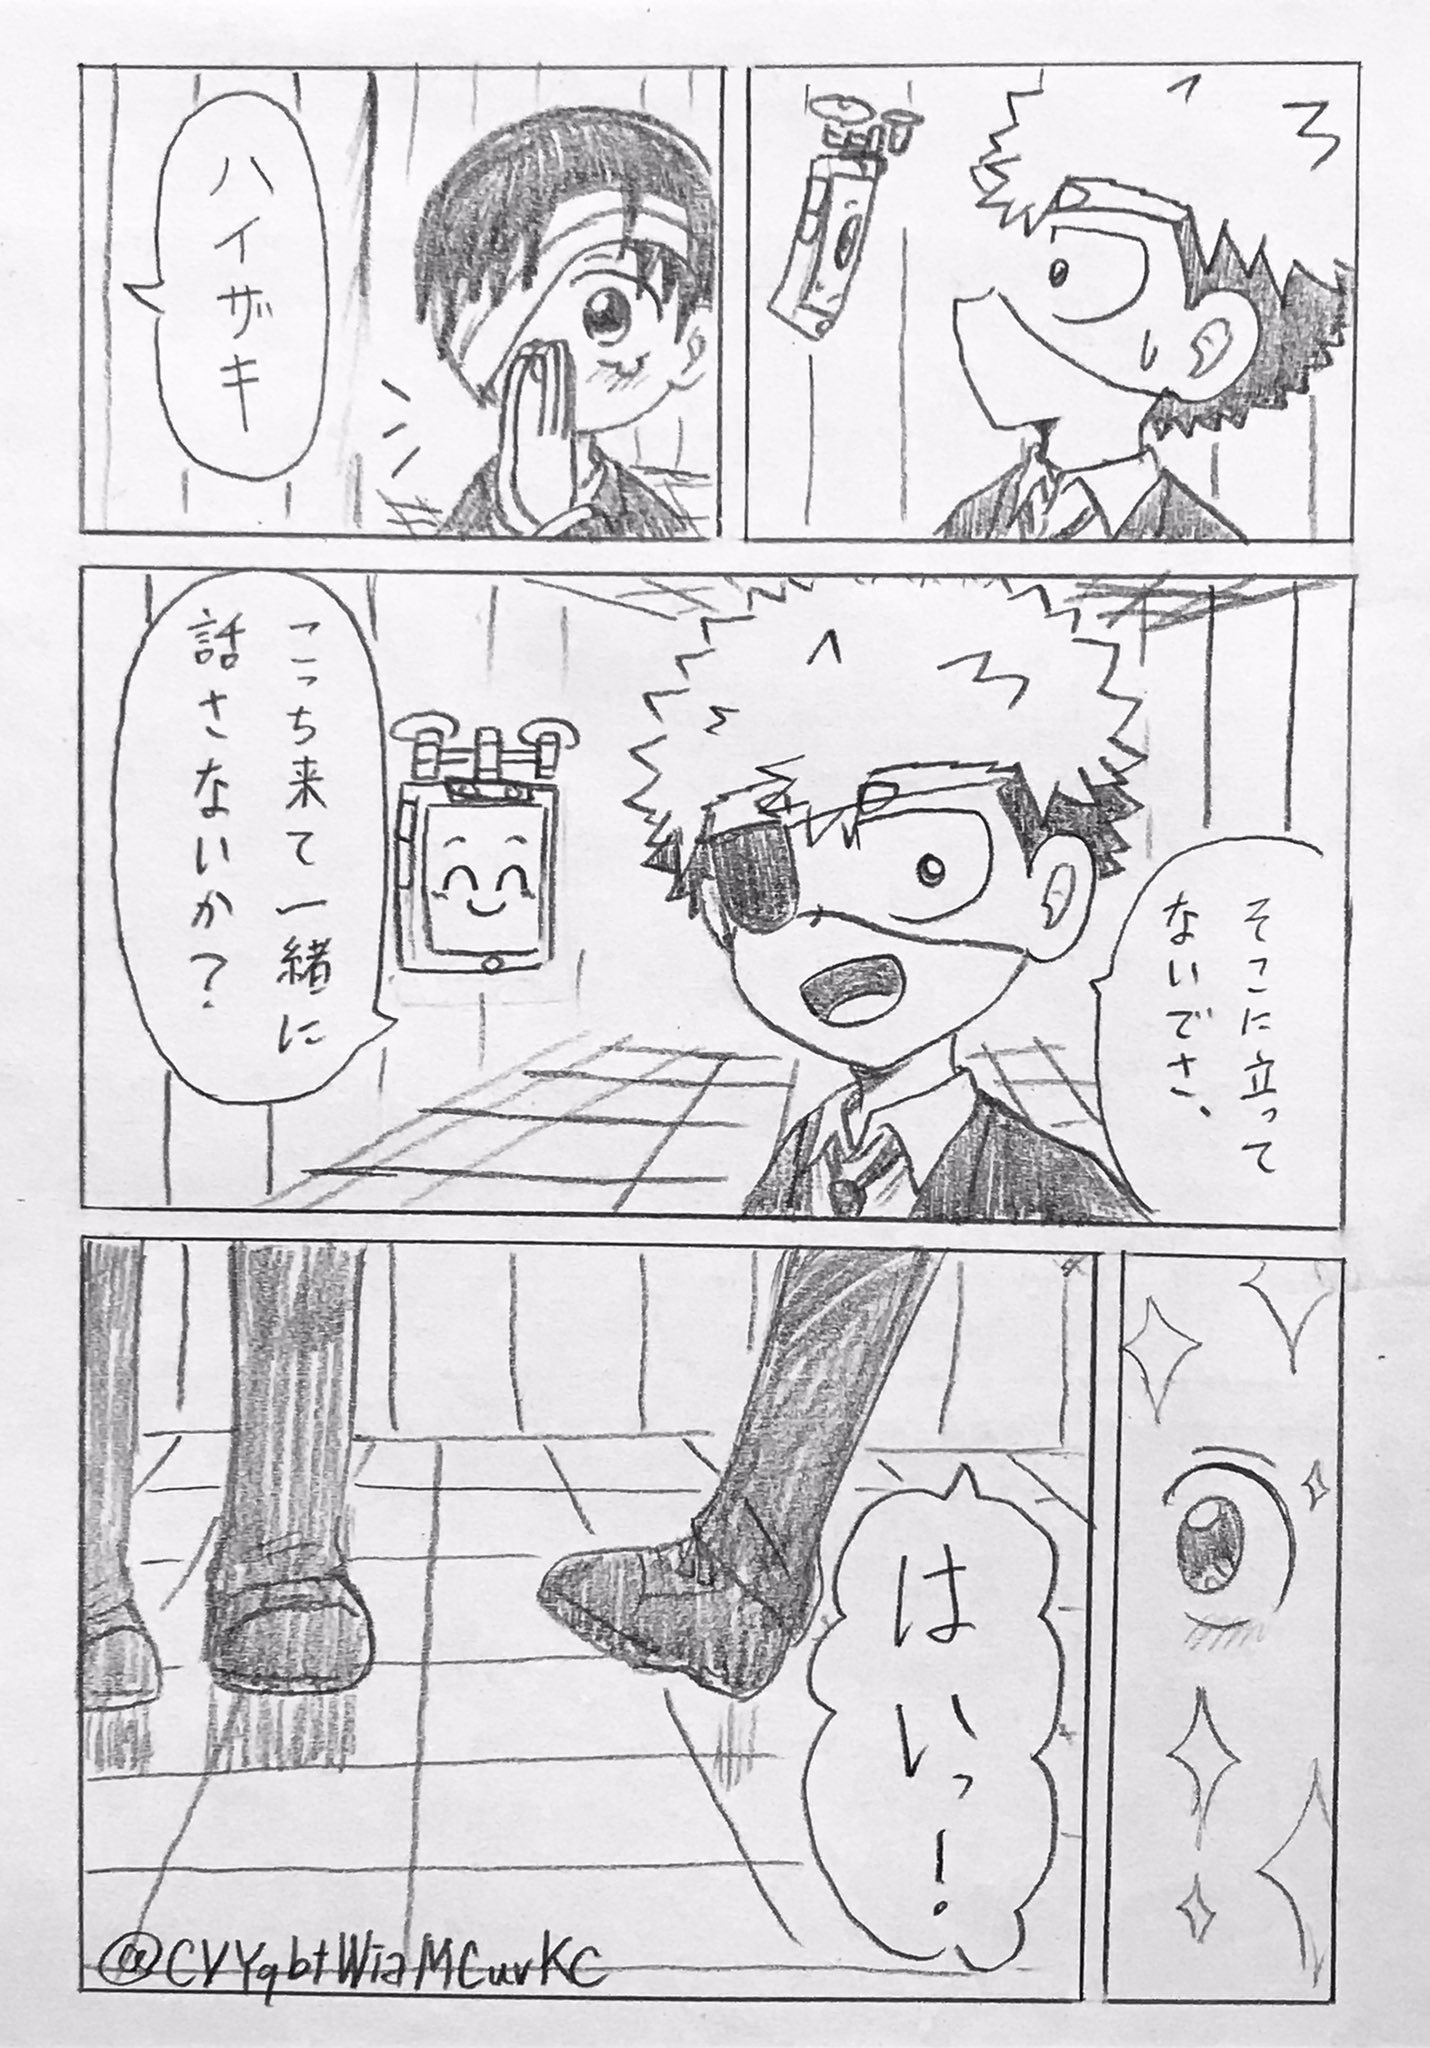 ハイザキ
そこに立って
ないでさ、
こっち来て一緒に
話さないか？
はいっ！
@CVYqbtWiaMCuvKC